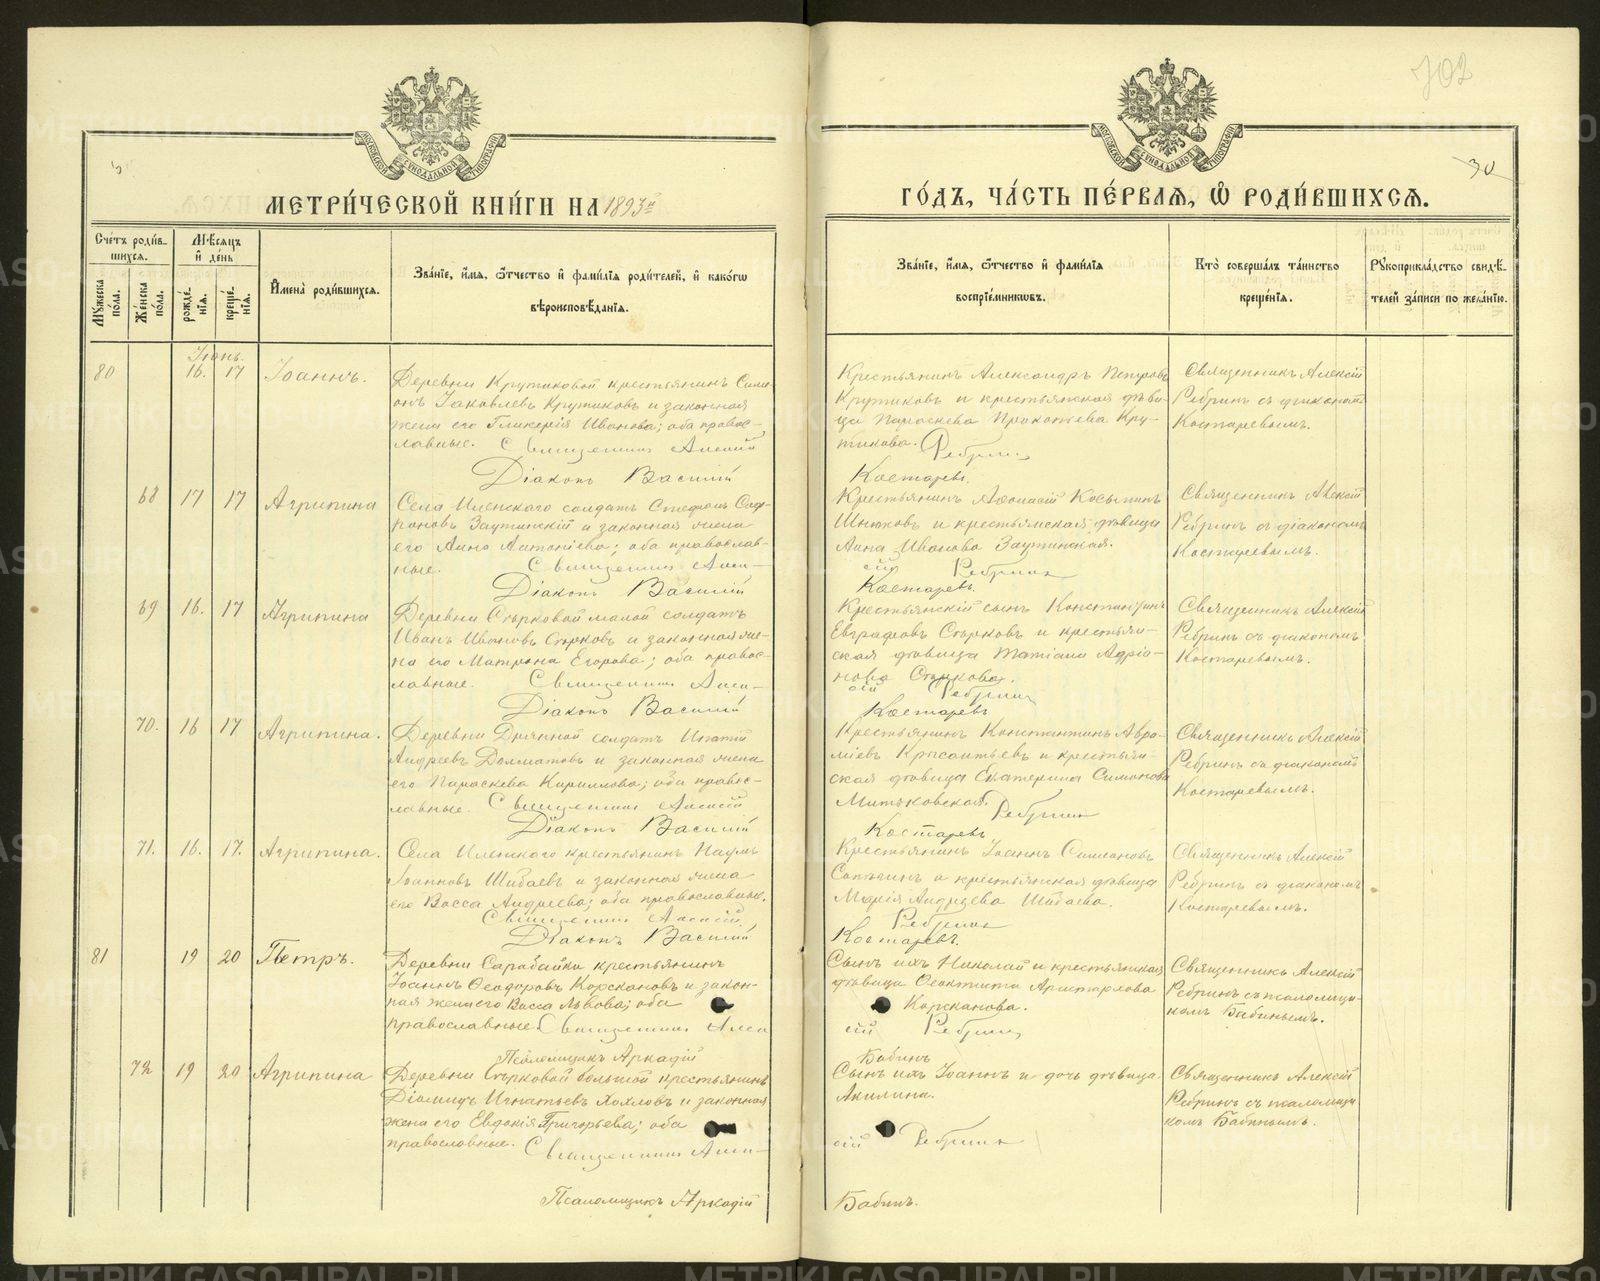 702
30
МОСКОВСКОЙ СѴНОДАЛЬНОЙ ТИПОГРАФІИ
МОСКОВСКОЙ СѴНОДАЛЬНОЙ ТИПОГРАФІИ
МЕТРИ́ЧЕСКОЙ КНИ́ГИ НА 1893й
ГО́ДЪ, ЧА́СТЬ ПЕ́РВАѦ, Ѡ РОДИ́ВШИХСѦ.
Сче́тъ роди́в-
шихсѧ.
Мꙋжеска по́ла.
Же́нска по́ла.
Мѣ́сѧцъ
и҆ де́нь
рожде́-
нїѧ.
креще́-
нїѧ.
И҆мена̀ роди́вшихсѧ.
Зва́нїе, и҆́мѧ, ѻ҆́тчество и҆ фами́лїѧ роди́телей, и҆ како́гѡ
вѣроисповѣ́данїѧ.
Зва́нїе, и҆́мѧ, ѻ҆́тчество и҆ фами́лїѧ
воспрїе́мникѡвъ.
Кто̀ соверша́лъ та́инство
креще́нїѧ.
Рꙋкоприкла́дство свидѣ́-
телей за́писи по жела́нїю.
Іюнь.
80 16. 17 Іоаннъ.
Деревни Крутиковой крестьянинъ Симе-
онъ Іаковлевъ Крутиковъ и законная
жена его Гликерія Иванова; оба правос-
лавные. Священникъ Алексій
Діаконъ Василій
Крестьянинъ Александръ Петровъ
Крутиковъ и крестьянская дѣви-
ца Параскева Прокопьева Кру-
тикова. Ребринъ
Костаревъ.
Священникъ Алексій
Ребринъ съ діакономъ
Костаревымъ.
68 17 17 Агрипина
Села Иленского солдатъ Стефанъ Соф-
роновъ Заутинскій и законная жена
его Анна Антоніева; оба православ-
ные. Священникъ Алек-
Діаконъ Василій
Крестьянинъ Аѳонасій Косьминъ
Шнюковъ и крестьянская дѣвица
Анна Иванова Заутинская.
сій Ребринъ
Костаревъ.
Священникъ Алексій
Ребринъ съ діакономъ
Костаревымъ.
69 16. 17 Агрипина
Деревни Стрковой малой солдатъ
Иванъ Ивановъ Стрковъ и законная же-
на его Матрона Егорова; оба правос-
лавные. Священникъ Алек-
Діаконъ Василій
Крестьянскій сынъ Константинъ
Евграфовъ Стрковъ и крестьян-
ская дѣвица Татіана Адріа-
нова Стркова.
сій Ребринъ
Костаревъ
Священникъ Алексій
Ребринъ съ діакономъ
Костаревымъ.
70. 16 17 Агрипина.
Деревни солдатъ Ипатій
Андреевъ Долматовъ и законная жена
его Параскева Кирилова; оба правос-
лавные. Священникъ Алексій
Діаконъ Василій
Крестьянинъ Константинъ Авра-
міевъ Крысантьевъ и крестьян-
ская дѣвица Екатерина Симонова
Митьковская. Ребринъ
Костаревъ
Священникъ Алексій
Ребринъ съ діакономъ
Костаревымъ.
71. 16. 17. Агрипина.
Села Иленского крестьянинъ Наумъ
Іоанновъ Шибаевъ и законная жена
его Васса Андреева; оба православные.
Священникъ Алексій.
Діаконъ Василій
Крестьянинъ Іоаннъ Симеоновъ
и крестьянская дѣвица
Марія Андреева Шибаева.
Ребринъ
Костаревъ.
Священникъ Алексій
Ребринъ съ діакономъ
Костаревымъ.
81 19 20 Петръ.
Деревни Сарабайки крестьянинъ
Іоаннъ Ѳеодоровъ Корскановъ и закон-
ная жена его Васса Львова; оба
православные. Священникъ Алек
Псаломщикъ Аркадій
Сынъ ихъ Николай и крестьянская
дѣвица Ѳеоктиста Аристархова
Корсканова.
сій Ребринъ
Бабинъ
Священникъ Алексій
Ребринъ съ псаломщи-
комъ Бабинымъ.
72 19 20 Агрипина
Деревни Стрковой большой крестьянинъ
Діомидъ Игнатьевъ Хохловъ и законная
жена его Евдокія Григорьева; оба
православные. Священникъ Алек-
Псаломщикъ Аркадій
Сынъ ихъ Іоаннъ и дочь дѣвица
Акилина.
сій Ребринъ
Бабинъ.
Священникъ Алексій
Ребринъ съ псаломщи
комъ Бабинымъ.
METRIKI.GASO-URAL.RU